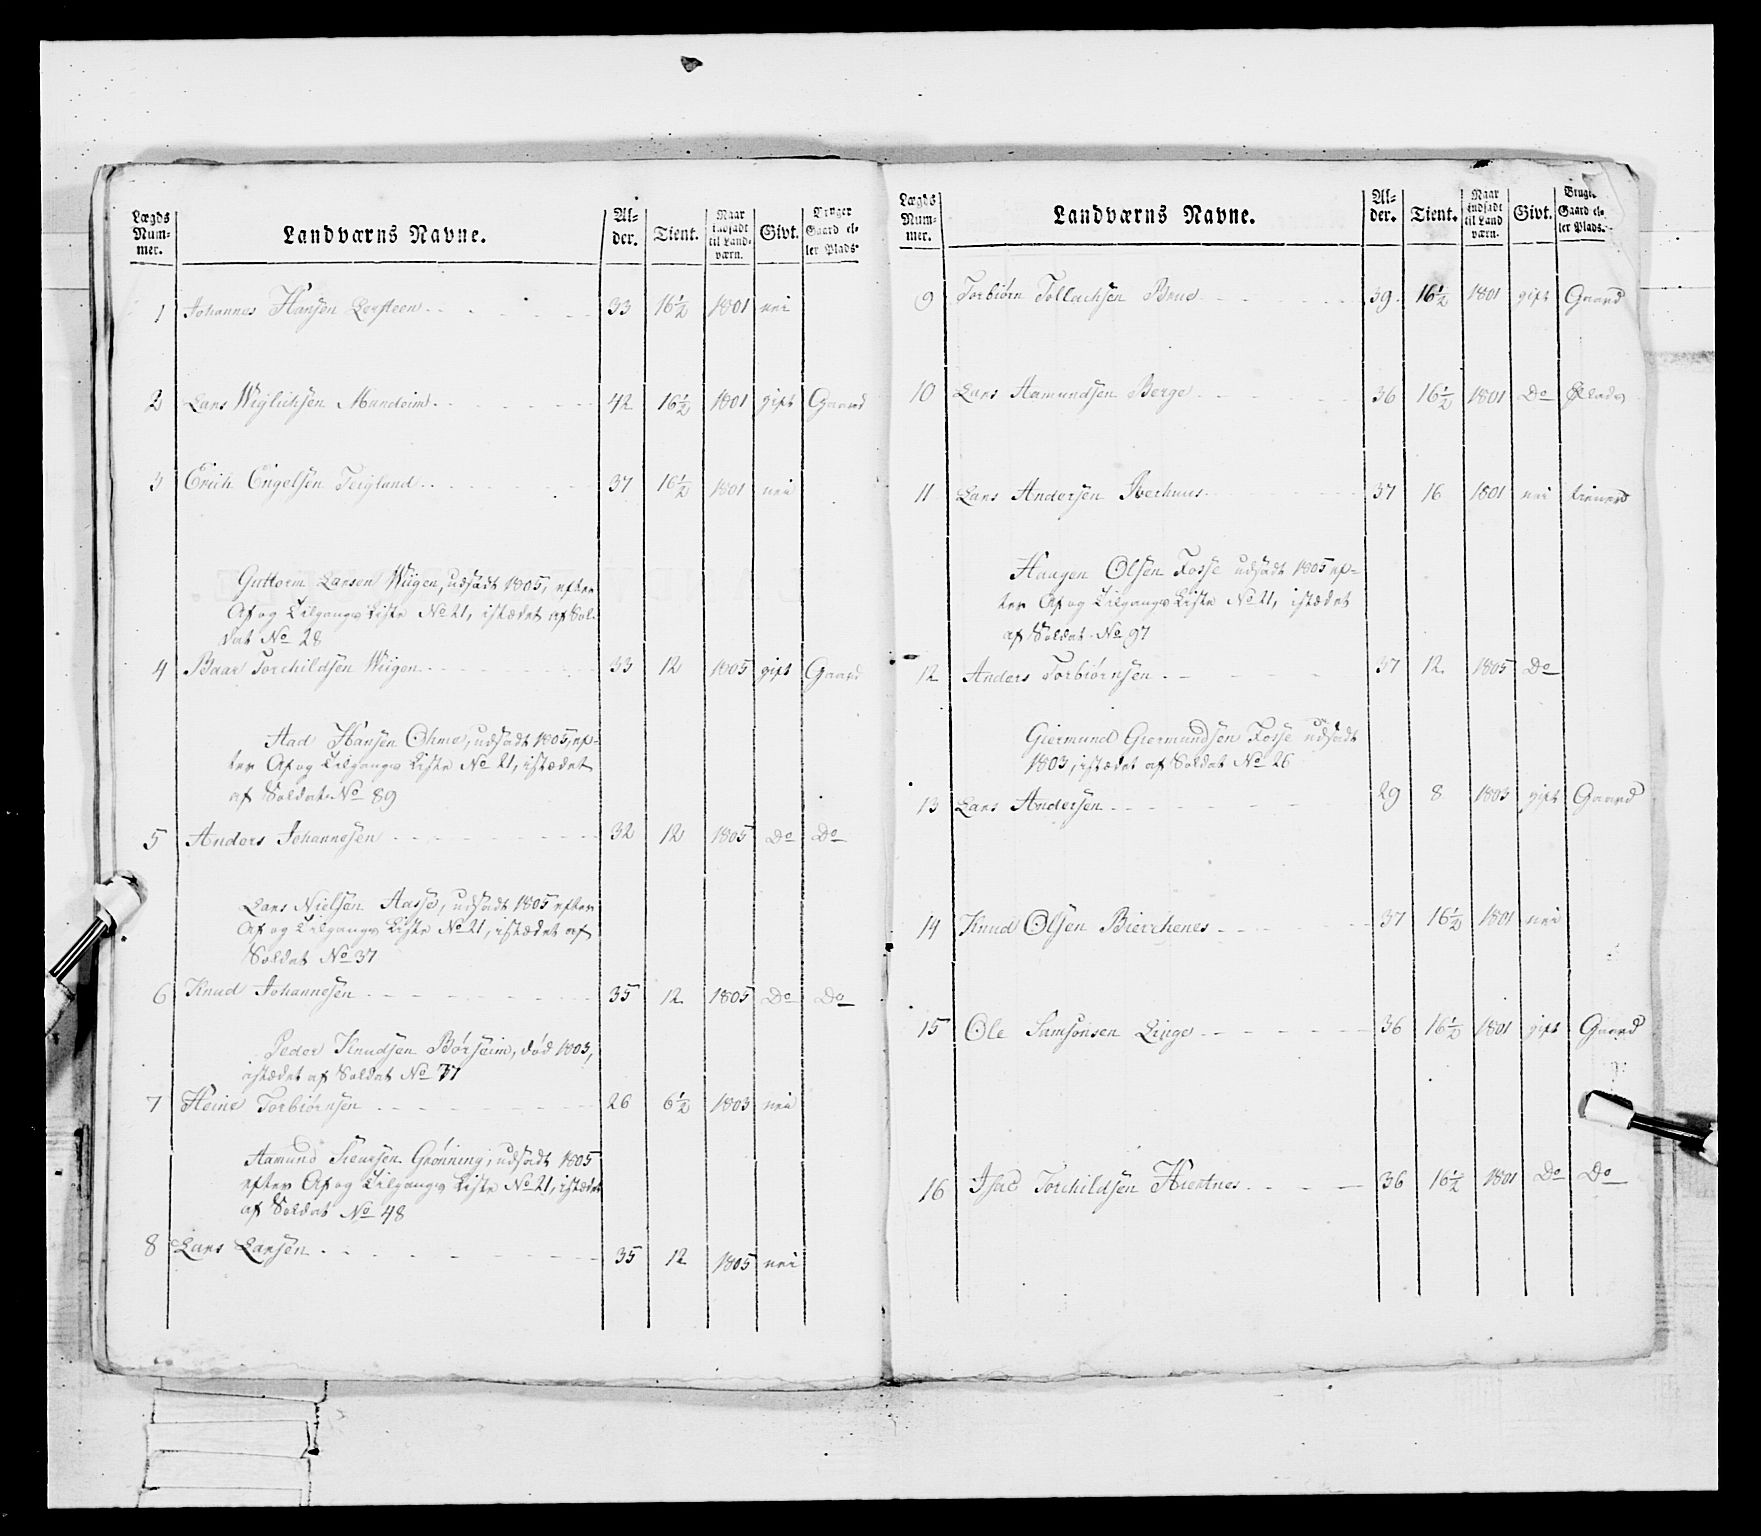 Lægds Num- mer. Landværns Navne. Al- der. Tient. Naar indsadt til Land- værn. Givt. Bruger Gaard el- ler Plads.
1 Johannes Hansen 33 16½ 1801 nei
2 Lars Wiglichsen Mundeim 42 16½ 1801 gift Gaard
3 Erich Engelsen Teigland 37 16½ 1801 nei
Guttorm Larsen Wiigen, udsadt 1805, efter
Af og Tilgangs Liste No 21, istædet af Sol-
dat No 28
4 Baar Torchildsen Wiigen 33 12 1805 gift Gaard
Aad Hansen Ohme, udsadt 1805, ef-
ter Af og Tilgangs Liste No 21, istædet
af Soldat No 89
5 Anders Johannesen 32 12 1805 Do Do
Lars Nielsen Aasse, udsadt 1805 efter
Af og Tilgangs Liste No 21, istædet af
Soldat No 37
6 Knud Johannesen 35 12 1805 Do Do
Peder Knudsen Børseim, død 1803,
istædet af Soldat No 71
7 Heine Torbiørnsen 26 6½ 1803 nei
Aamund Grønning, udsadt 1805
efter Af og Tilgangs Liste No 21, istædet
af Soldat No 48
8 Lars Larsen 35 12 1805 nei
Lægds Num- mer. Landværns Navne. Al- der. Tient. Naar indsadt til Land værn. Givt. Bruger Gaard el- ler Plads.
9 Torbiørn Tollachsen Brue 39 16½ 1801 gift Gaard
10 Lars Aamundsen Berge 36 16½ 1801 Do Plads
11 Lars Andersen 37 16 1801 nei tiener
Haagen Olsen Fosse udsadt 1805 ef-
ter Af og Tilgangs Liste No 21, istædet
af Soldat No 97
12 Anders Torbiørnsen 37 12 1805 Do
Giermund Giermundsen Fosse udsadt
1803, istædet af Soldat No 26
13 Lars Andersen 29 8 1803 gift Gaard
14 Knud Olsen Bierchenes 37 16½ 1801 nei
15 Ole Samsonsen Linge 36 16½ 1801 gift Gaard
16 Isac Torchildsen 36 16½ 1801 Do Do